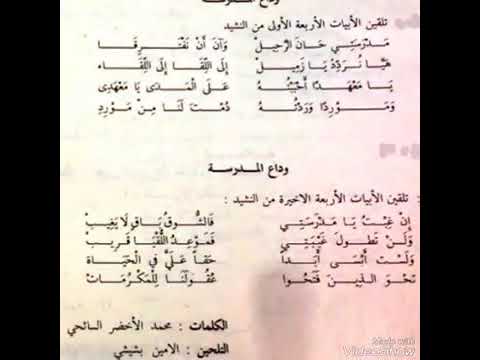 وداع المدرسة
تلقين الأبيات الأربعة الأولى من النشيد
مَدْرَسَتِي حَانَ الرَّحِيلْ وَآنَ أَنْ نَفْتَرِقَا
هَيَّا نُرَدِّدْ يَا زَمِيلْ إِلَى اللِّقَا إِلَى اللِّقَاء
يَا مَعْهَدًا أَحْبَبْتُهُ عَلَى الْمَدَى يَا مَعْهَدِي
وَمَوْرِدًا وَرَدْتُهُ دُمْتَ لَنَا مِنْ مَوْرِدِ
وداع المدرسة
تلقين الأبيات الأربعة الاخيرة من النشيد :
إِنْ غِبْتُ يَا مَدْرَسَتِي فَالشَّوْقُ بَاقٍ لَا يَغِيبْ
وَلَنْ تَطُولَ غَيْبَتِي فَمَوْعِدُ اللُّقْيَا قَرِيبْ
وَلَسْتُ أَنْسَى أَبَداً حَقاً عَلَيَّ فِي الْحَيَاة
نَحْوَ الَّذِينَ فَتَحُوا عُقُولَنَا لِلْمَكْرُمَاتْ
الكلمات : محمد الأخضر السائحي
التلحين : الامين بشيشي
Made with
VideoShow